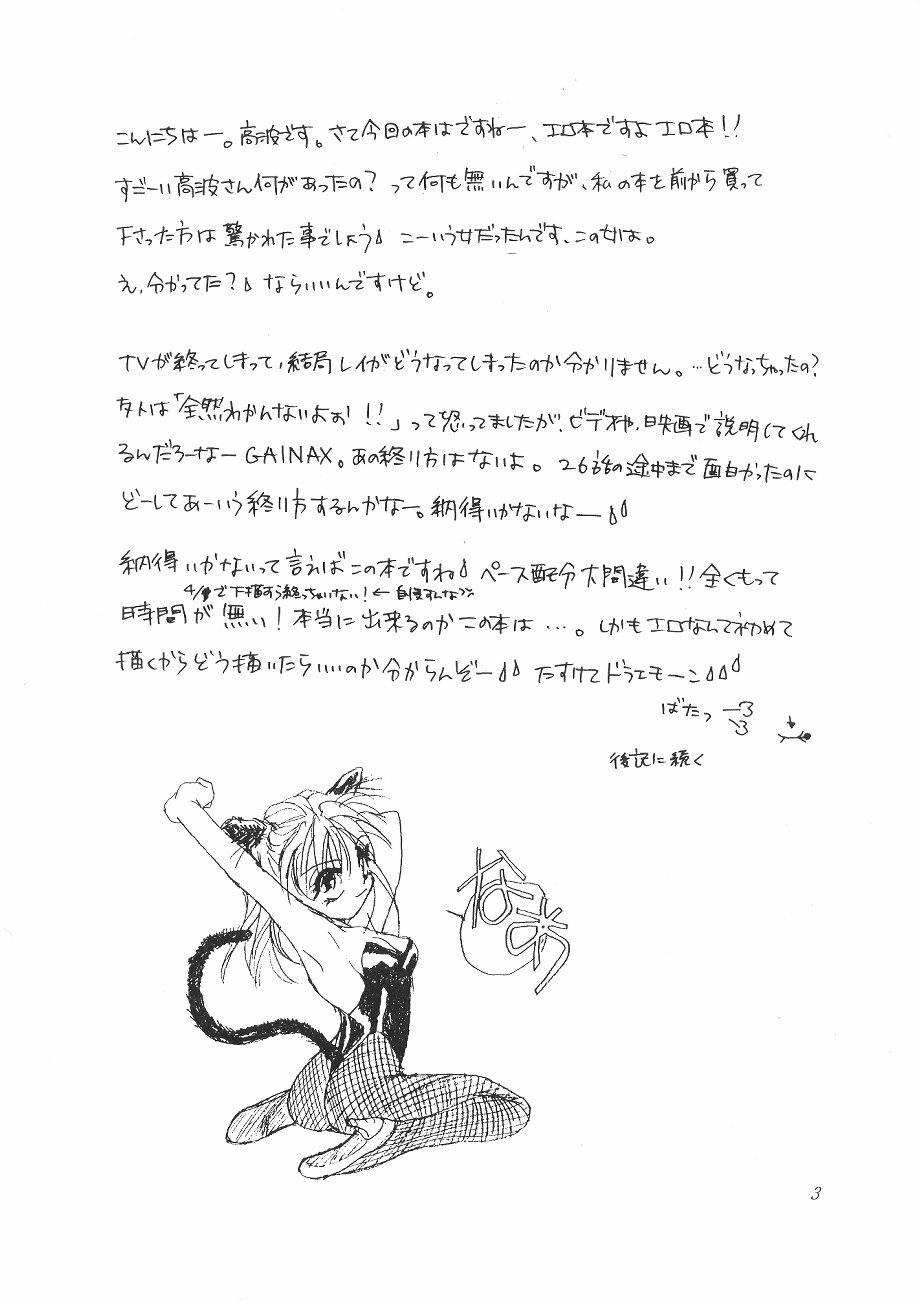 こんにちはー。高波です。さて今回の本はですねー、エロ本ですよエロ本!!
すごーい高波さん何があったの?って何も無いんですが、私の本を前から買って
下さった方は驚かれた事でしょう こーいう女だったんです、この女は。
え、分かってた? ならいいんですけど。
TVが終ってしまって、結局レイがどうなってしまったのか分かりません。…どうなっちゃったの?
友人は「全然わかんないよぉ!!」って怒ってましたが、ビデオや、映画で説明してくれ
るんだろーなー GAINAX。あの終り方はないよ。26話の途中まで面白かったのに
どーしてあーいう終り方するんかなー。納得いかないなー
納得いかないって言えばこの本ですね ペース配分大間違い!!全くもって
で下描すら終っちゃいない!←自慢すんな
時間が無い!本当に出来るのかこの本は…。しかもエロなんて初めて
描くからどう描いたらいいのか分からんぞー たすけてドラエモーン
ばたっ
後記に続く
3